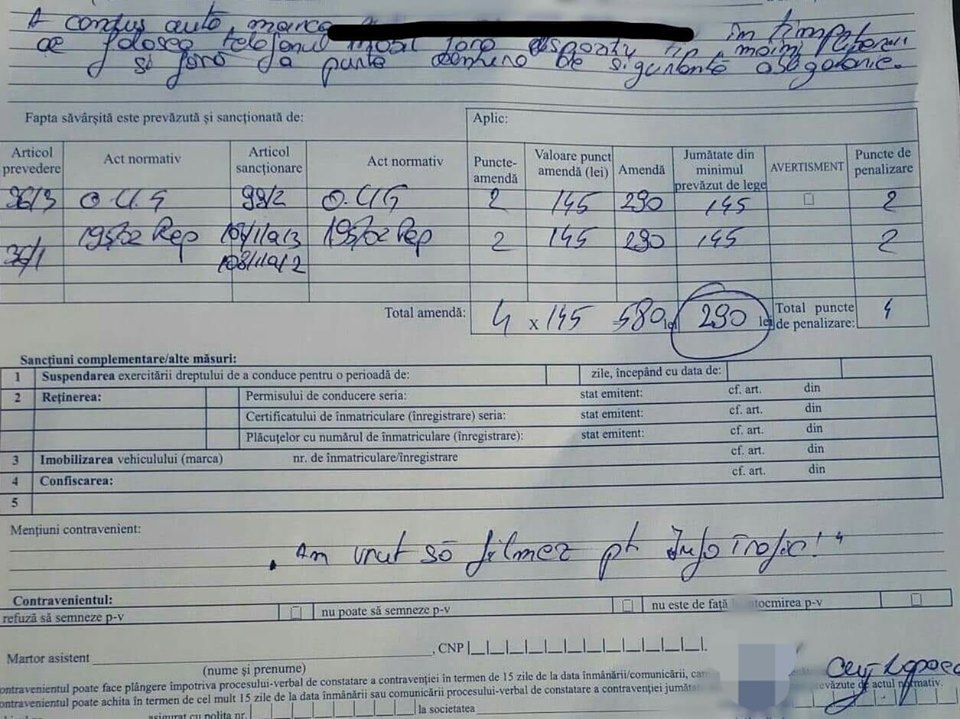 A condus auto marca în timp ce
folosea telefonul mobil fără dispozitiv tip "mâini libere"
și fără a purta centura de siguranță obligatorie.
Fapta săvârșită este prevăzută și sancționată de: Aplic:
Articol prevedere Act normativ Articol sancționare Act normativ Puncte-amendă Valoare punct amendă (lei) Amendă Jumătate din minimul prevăzut de lege AVERTISMENT Puncte de penalizare
36/3 O.U.G 99/2 O.UG 2 145 290 145 2
36/1 195/02 Rep 108/1/a/3 195/02 Rep 2 145 290 145 2
108/1/a/2
Total amendă: 4 x 145 =580 lei 290 lei Total puncte de penalizare: 4
Sancțiuni complementare/alte măsuri:
1 Suspendarea exercitării dreptului de a conduce pentru o perioadă de: zile, începând cu data de:
2 Reținerea: Permisului de conducere seria: stat emitent: cf. art. din
Certificatului de înmatriculare (înregistrare) seria: stat emitent: cf. art. din
Plăcuțelor cu numărul de înmatriculare (înregistrare): stat emitent: cf. art. din
3 Imobilizarea vehiculului (marca) nr. de înmatriculare/înregistrare cf. art. din
4 Confiscarea: cf. art. din
5
Mențiuni contravenient:
„Am vrut să filmez pt Info Trafic!"
Contravenientul:
refuză să semneze p-v nu poate să semneze p-v nu este de față întocmirea p-v
Martor asistent , CNP
(nume și prenume)
ontravenientul poate face plângere împotriva procesului-verbal de constatare a contravenției în termen de 15 zile de la data înmânării/comunicării, Cluj Napoca
ontravenientul poate achita în termen de cel mult 15 zile de la data înmânării sau comunicării procesului-verbal de constatare a contravenției prevăzute de actul normativ.
asigurat cu polița nr. la societatea